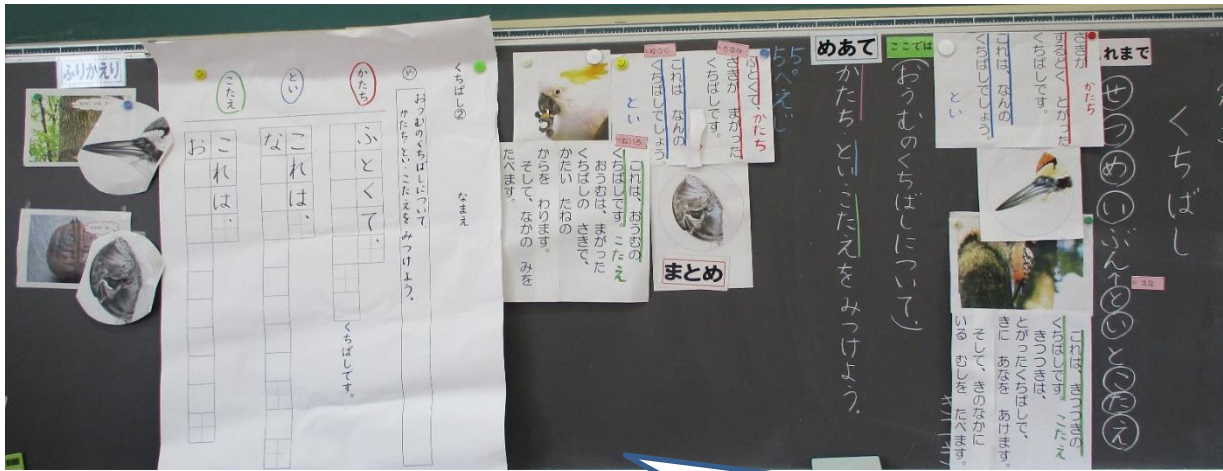 くちばし
これまで
せつめいぶん↑といとこたえ
かたち
さきが
するどく とがった
くちばしです。
これは、なんの
くちばしでしょう
とい
これは、きつつきの
くちばしです。こたえ
きつつきは、
とがったくちばしで、
きに あなを あけます。
そして、きのなかに
いる むしを たべます。
ここでは
(おうむのくちばしについて)
めあて
かたち・とい・こたえをみつけよう。
55ぺえじ
ふとくて、かたち
さきが まがった
くちばしです。
これは なんの
くちばしでしょう。
とい
まとめ
これは、おうむの
くちばしです。こたえ
おうむは、まがった
くちばしの さきで、
かたい たねの
からを わります。
そして、なかの みを
たべます。
くちばし② なまえ
め おうむのくちばしについて、
かたち・とい・こたえを みつけよう。
かたち
ふとくて、
くちばしです。
とい
これは、
な
こたえ
これは、
お
ふりかえり